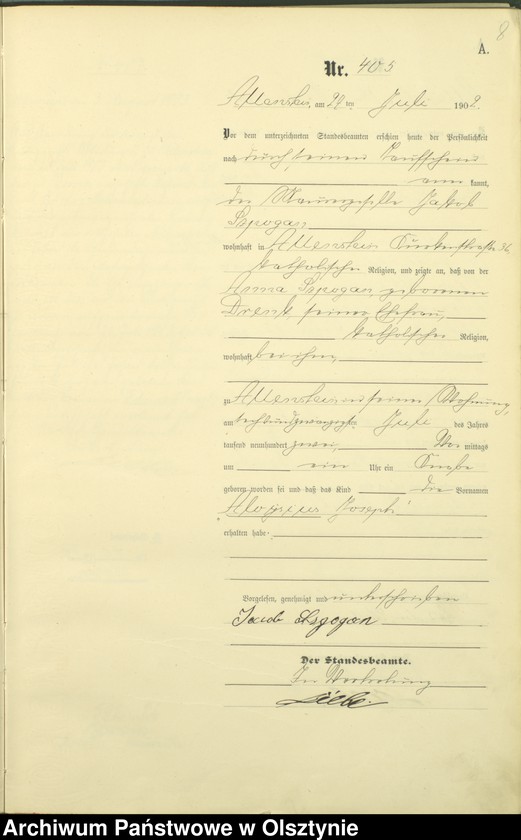 8
A.
Nr. 405
Allenstein, am ten Juli 1902.
Vor dem unterzeichneten Standesbeamten erschien heute der Persönlichkeit
nach durch seinen Taufschein
aner kannt,
der Maurergeselle Jakob
Szpogan
wohnhaft in Allenstein
katholischer Religion, und zeigte an, daß von der
Anna Szpogan, geborenen
seiner Ehefrau,
katholischer Religion,
wohnhaft bei ihm,
zu Allenstein in seiner Wohnung,
am Juli des Jahres
tausend neunhundert zwei, Vor mittags
um ein Uhr ein Knabe
geboren worden sei und daß das Kind die Vornamen
Aloysius Joseph
erhalten habe.
Vorgelesen, genehmigt und unterschrieben
Jacob
Der Standesbeamte.
In Vertretung
Archiwum Państwowe w Olsztynie